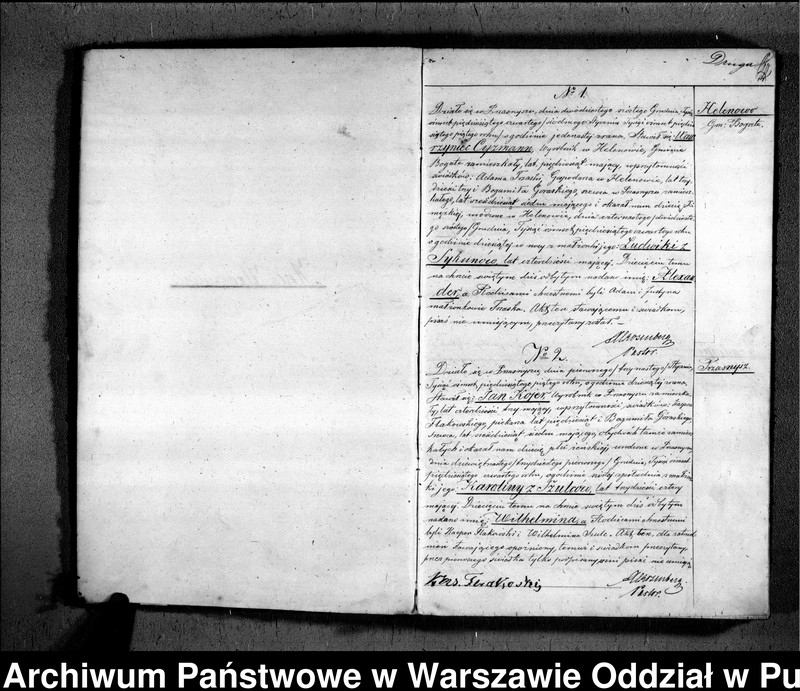 Druga
№ 1.
Helenowo
Gm: Bogate.
Działo się w Przasnyszu, dnia dwudziestego szóstego Grudnia
ośmset pięćdziesiątego czwartego /siódmego Stycznia tysiąc ośmset pięćdzie
siątego piątego roku/ o godzinie jedenastej zrana. Stawił się: Waw
rzyniec Cyzmann, Wyrobnik w Helenowie, Gminie
Bogate zamieszkały, lat pięćdziesiąt mający, w przytomności
świadków: Adama Gospodarza w Helenowie, lat trzy
dzieści trzy i Bogumiła Góraskiego, szewca w Przasnyszu zamiesz
kałego, lat sześćdziesiąt siedm mającego i okazał nam dziecię płci
męzkiej, urodzone w Helenowie, dnia czternastego /dwudzieste
go szóstego/ Grudnia, Tysiąc ośmset pięćdziesiątego czwartego roku
o godzinie dziesiątej w nocy z małżonki jego: Ludwiki z
lat czterdzieści mającej. Dziecięciu temu
na chrzcie świętym dziś odbytym nadane imię: Alexan
der, a Rodzicami chrzestnemi byli Adam i Justyna
małżonkowie Akt ten stawającemu i świadkom,
pisać nie umiejącym, przeczytany został. —
Rosenberg
Pastor.
№ 2.
Przasnysz.
Działo się w Przasnyszu dnia pierwszego /trzynastego/ Stycznia,
Tysiąc ośmset pięćdziesiątego piątego roku, o godzinie dziesiątej zrana.
Stawił się: Jan Kojer Wyrobnik w Przasnyszu zamieszka
ły, lat czterdzieści trzy mający, w przytomności świadków: Kaspra
Flakowskiego, piekarza lat pięćdziesiąt i Bogumiła Góraskiego
Szewca, lat sześćdziesiąt siedm mającego, obydwóch tamże zamiesz
kałych i okazał nam dziecię płci żeńskiej, urodzone w Przasnyszu
dnia dziewiętnastego /trzydziestego pierwszego/ Grudnia, Tysiąc ośmset
pięćdziesiątego czwartego roku, o godzinie z małżon
ki jego: Karoliny z Szulców, lat trzydzieści cztery
mającej. Dziecięciu temu na chrzcie świętym dziś odbytym
nadano imię: Wilhelmina, a Rodzicami chrzestnemi
byli Kasper Flakowski i Wilhelmina Szulc. Akt ten, dla
stawającego opóźniony, temuż i świadkom przeczytany,
przez pierwszego świadka tylko podpisany, inni pisać nie umieją
Rosenberg
Pastor.
Archiwum Państwowe w Warszawie Oddział w Pu